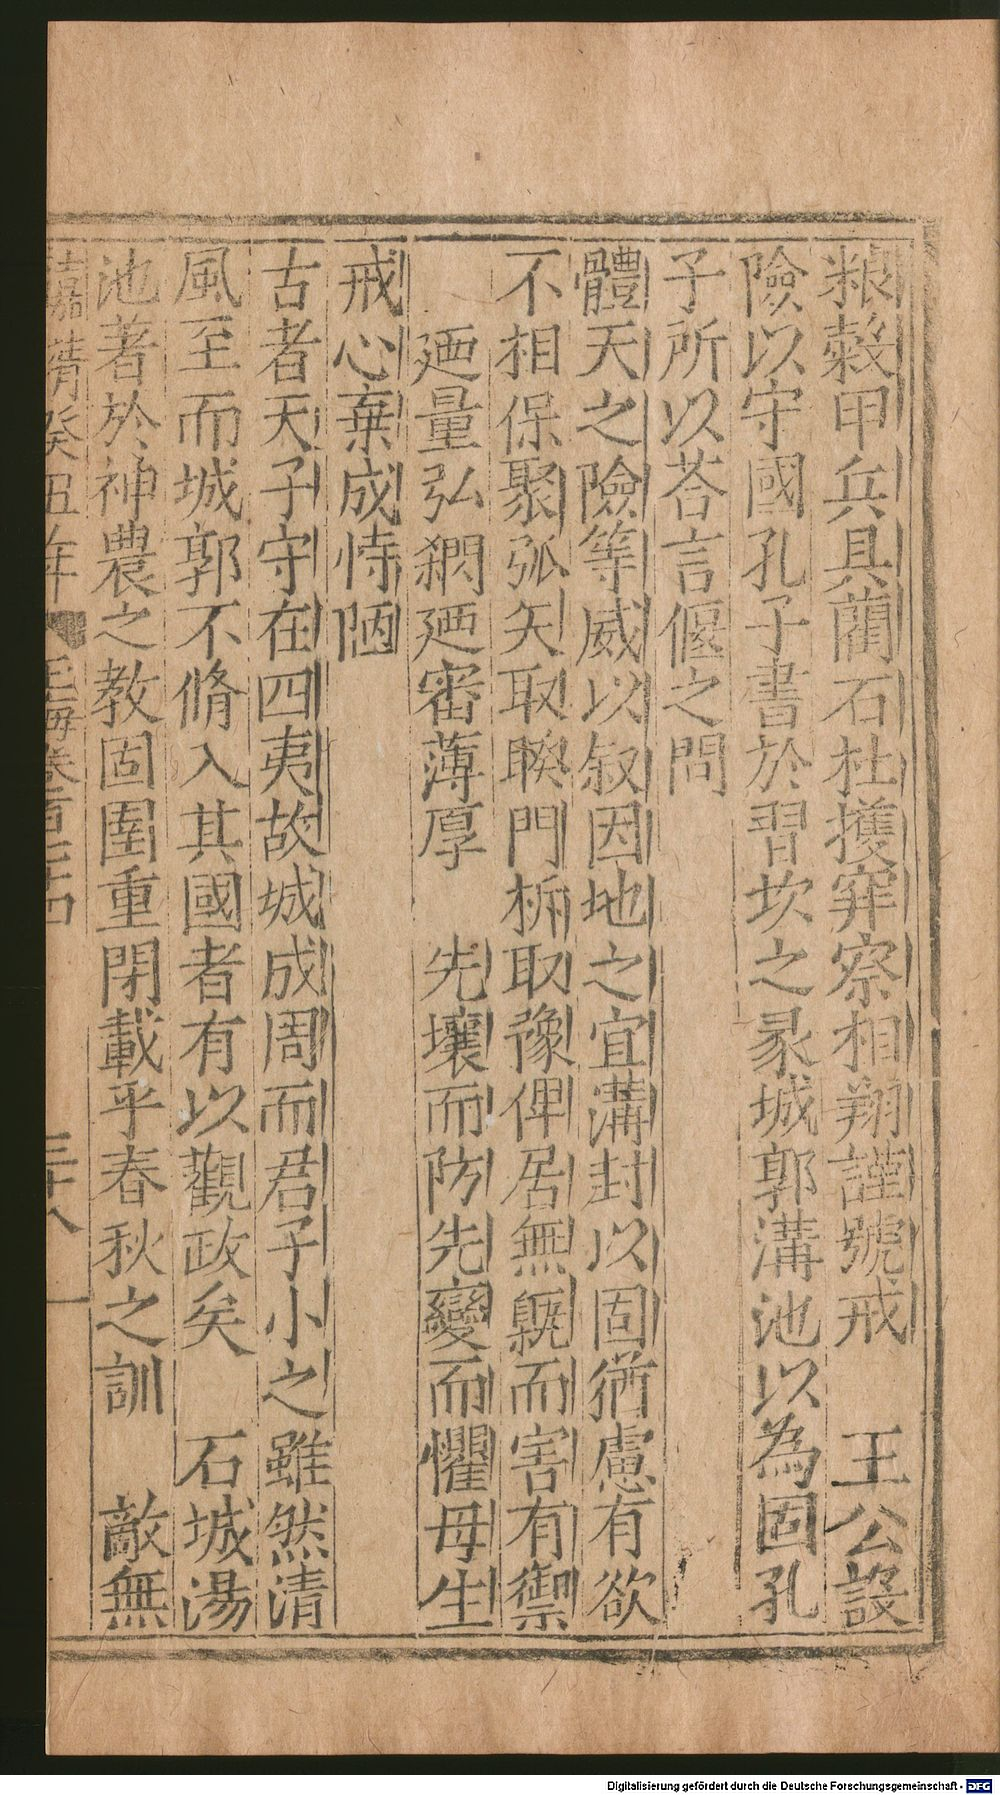 粮穀甲兵具藺石杜擭穽察相翔謹號戒　王公設
險以守國孔子書於習坎之彖城郭溝池以為固孔
子所以荅言偃之問
體天之險等威以叙因地之宜溝封以固猶慮有欲
不相保聚弧矢取睽門柝取豫俾居無𣣱而害有禦
廼量弘綱廼審薄厚　先壤而防先變而懼毋生
戒心棄成恃陋
古者天子守在四夷故城成周而君子小之雖然清
風至而城郭不脩入其國者有以觀政矣　石城湯
池著於神農之教固圉重閉載乎春秋之訓　敵無
嘉靖癸丑年　玉海卷百三十四　三十八
Digitalisierung gefördert durch die Deutsche Forschungsgemeinschaft - DFG